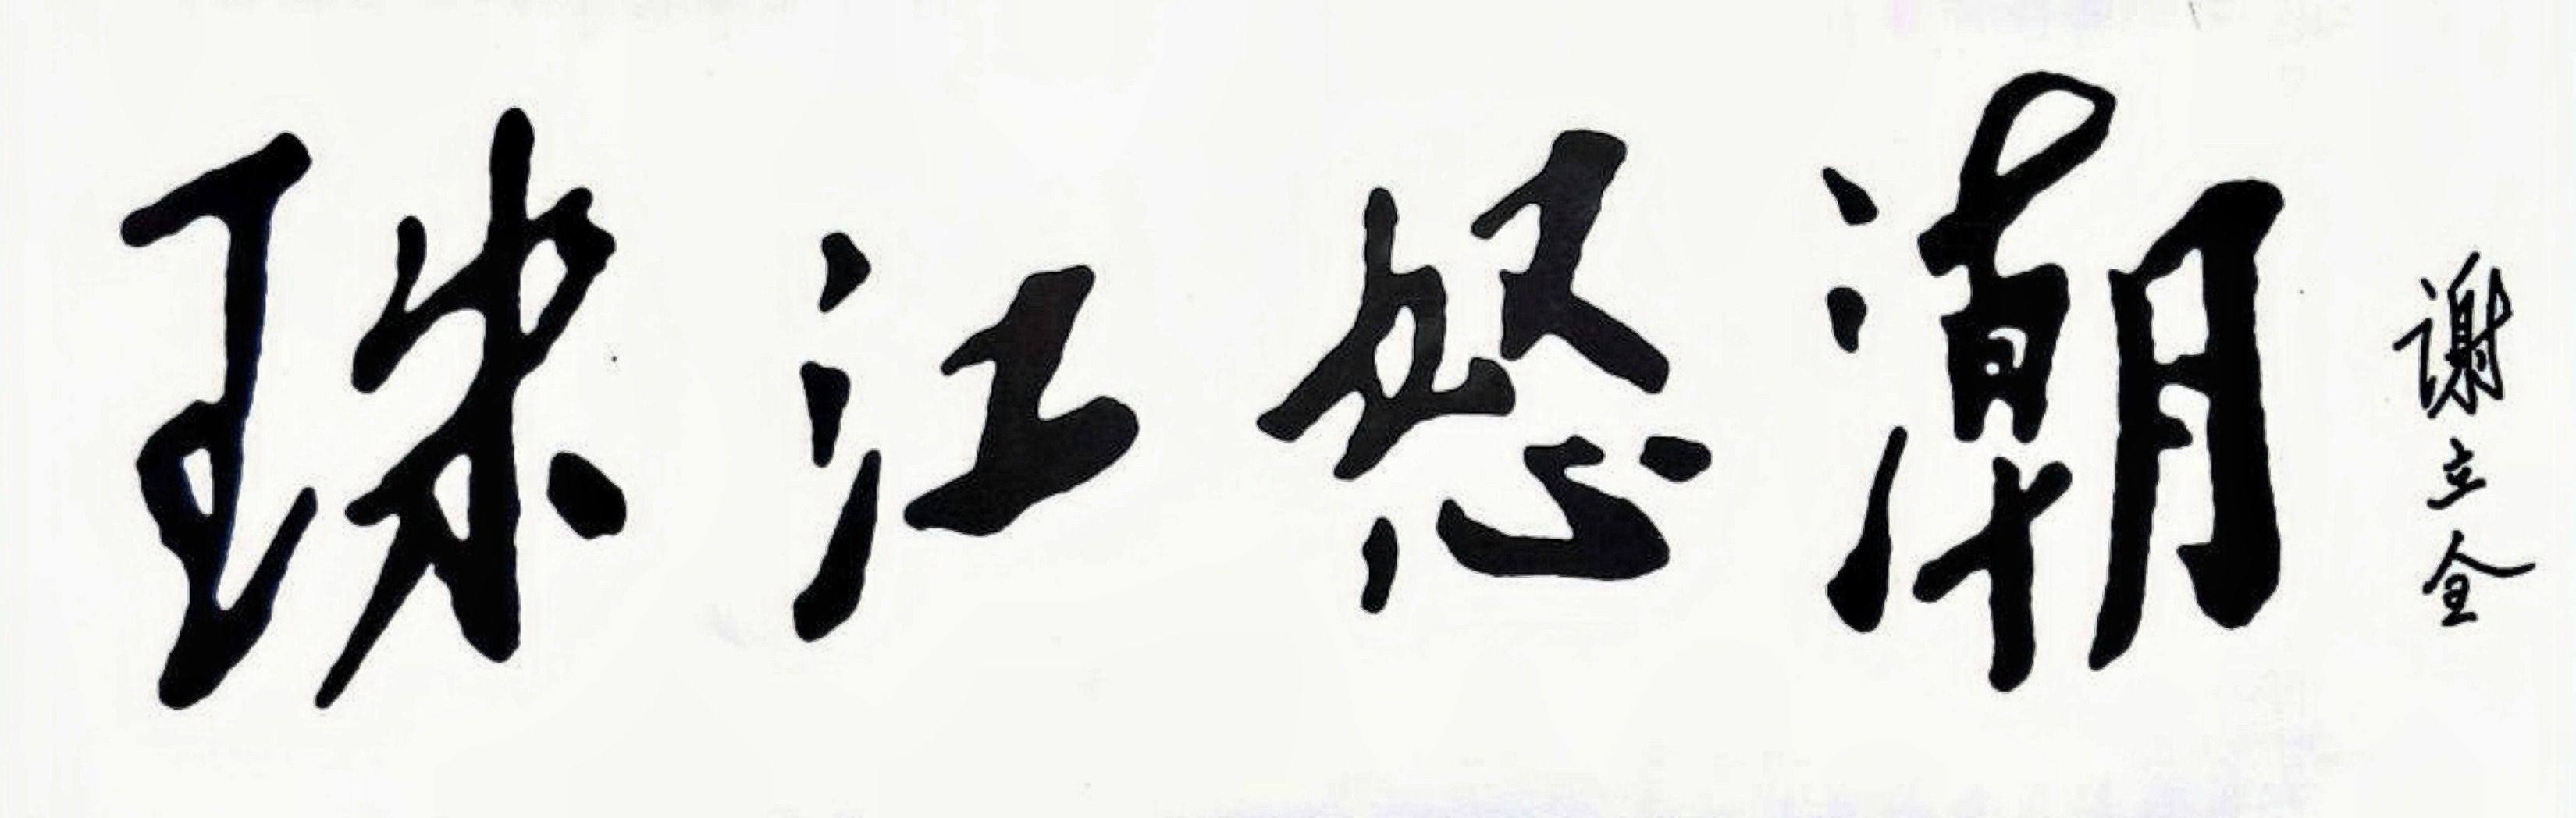 珠江怒潮
谢立全